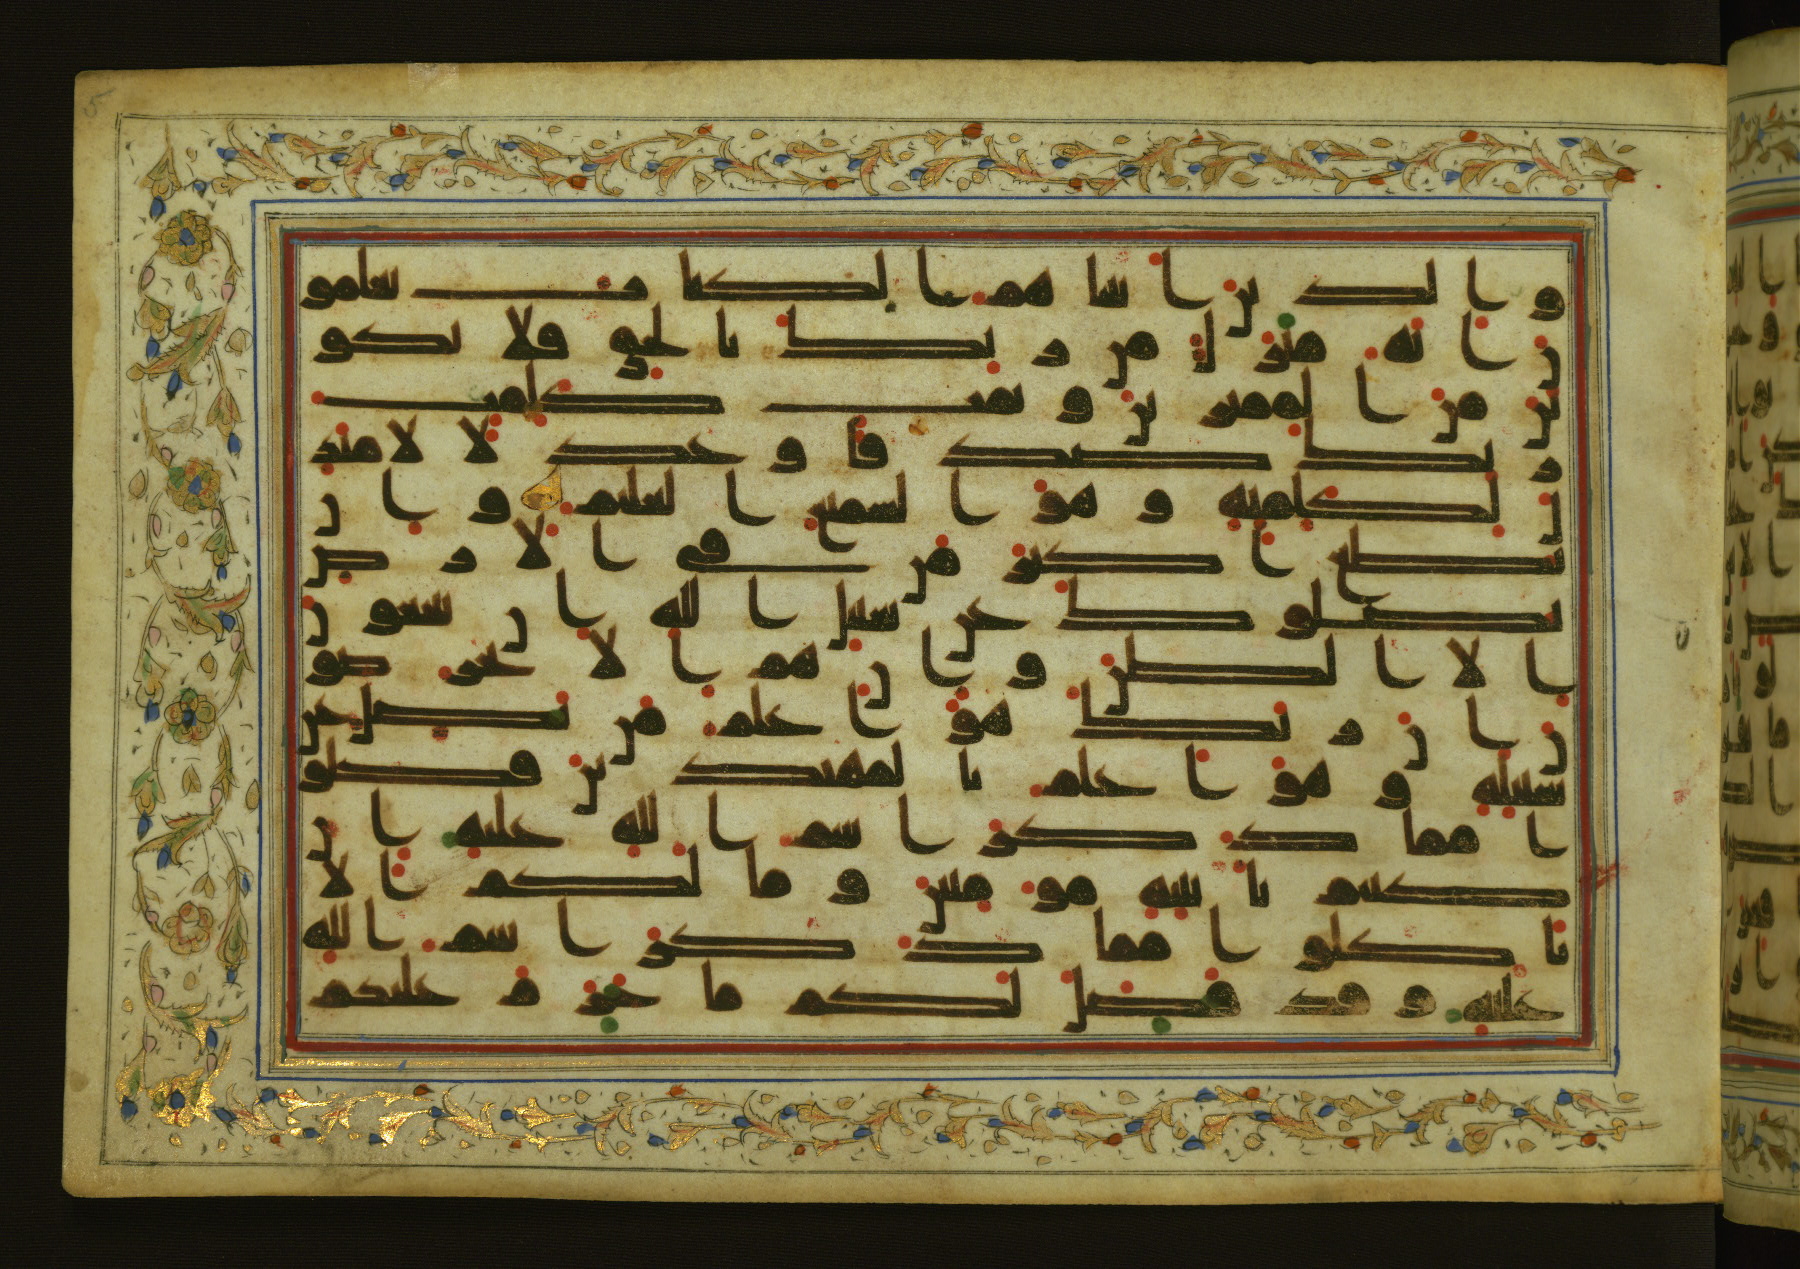 5
والذين اتينهم الكتب يعلمو
ن انه منزل من ربك بالحق فلا تكو
نن من الممترين وتمت كلمت
ربك صدقا وعدلا لا مبد
ل لكلمته وهو السميع العليم وان
تطع اكثر من في الارض
يضلوك عن سبيل الله ان يتبعون
الا الظن وان هم الا يخرصو
ن ان ربك هو اعلم من يضل عن
سبيله وهو اعلم بالمهتدين فكلو
ا مما ذكر اسم الله عليه ان
كنتم بايته مومنين وما لكم الا
تاكلوا مما ذكر اسم الله
عليه وقد فصل لكم ما حرم عليكم